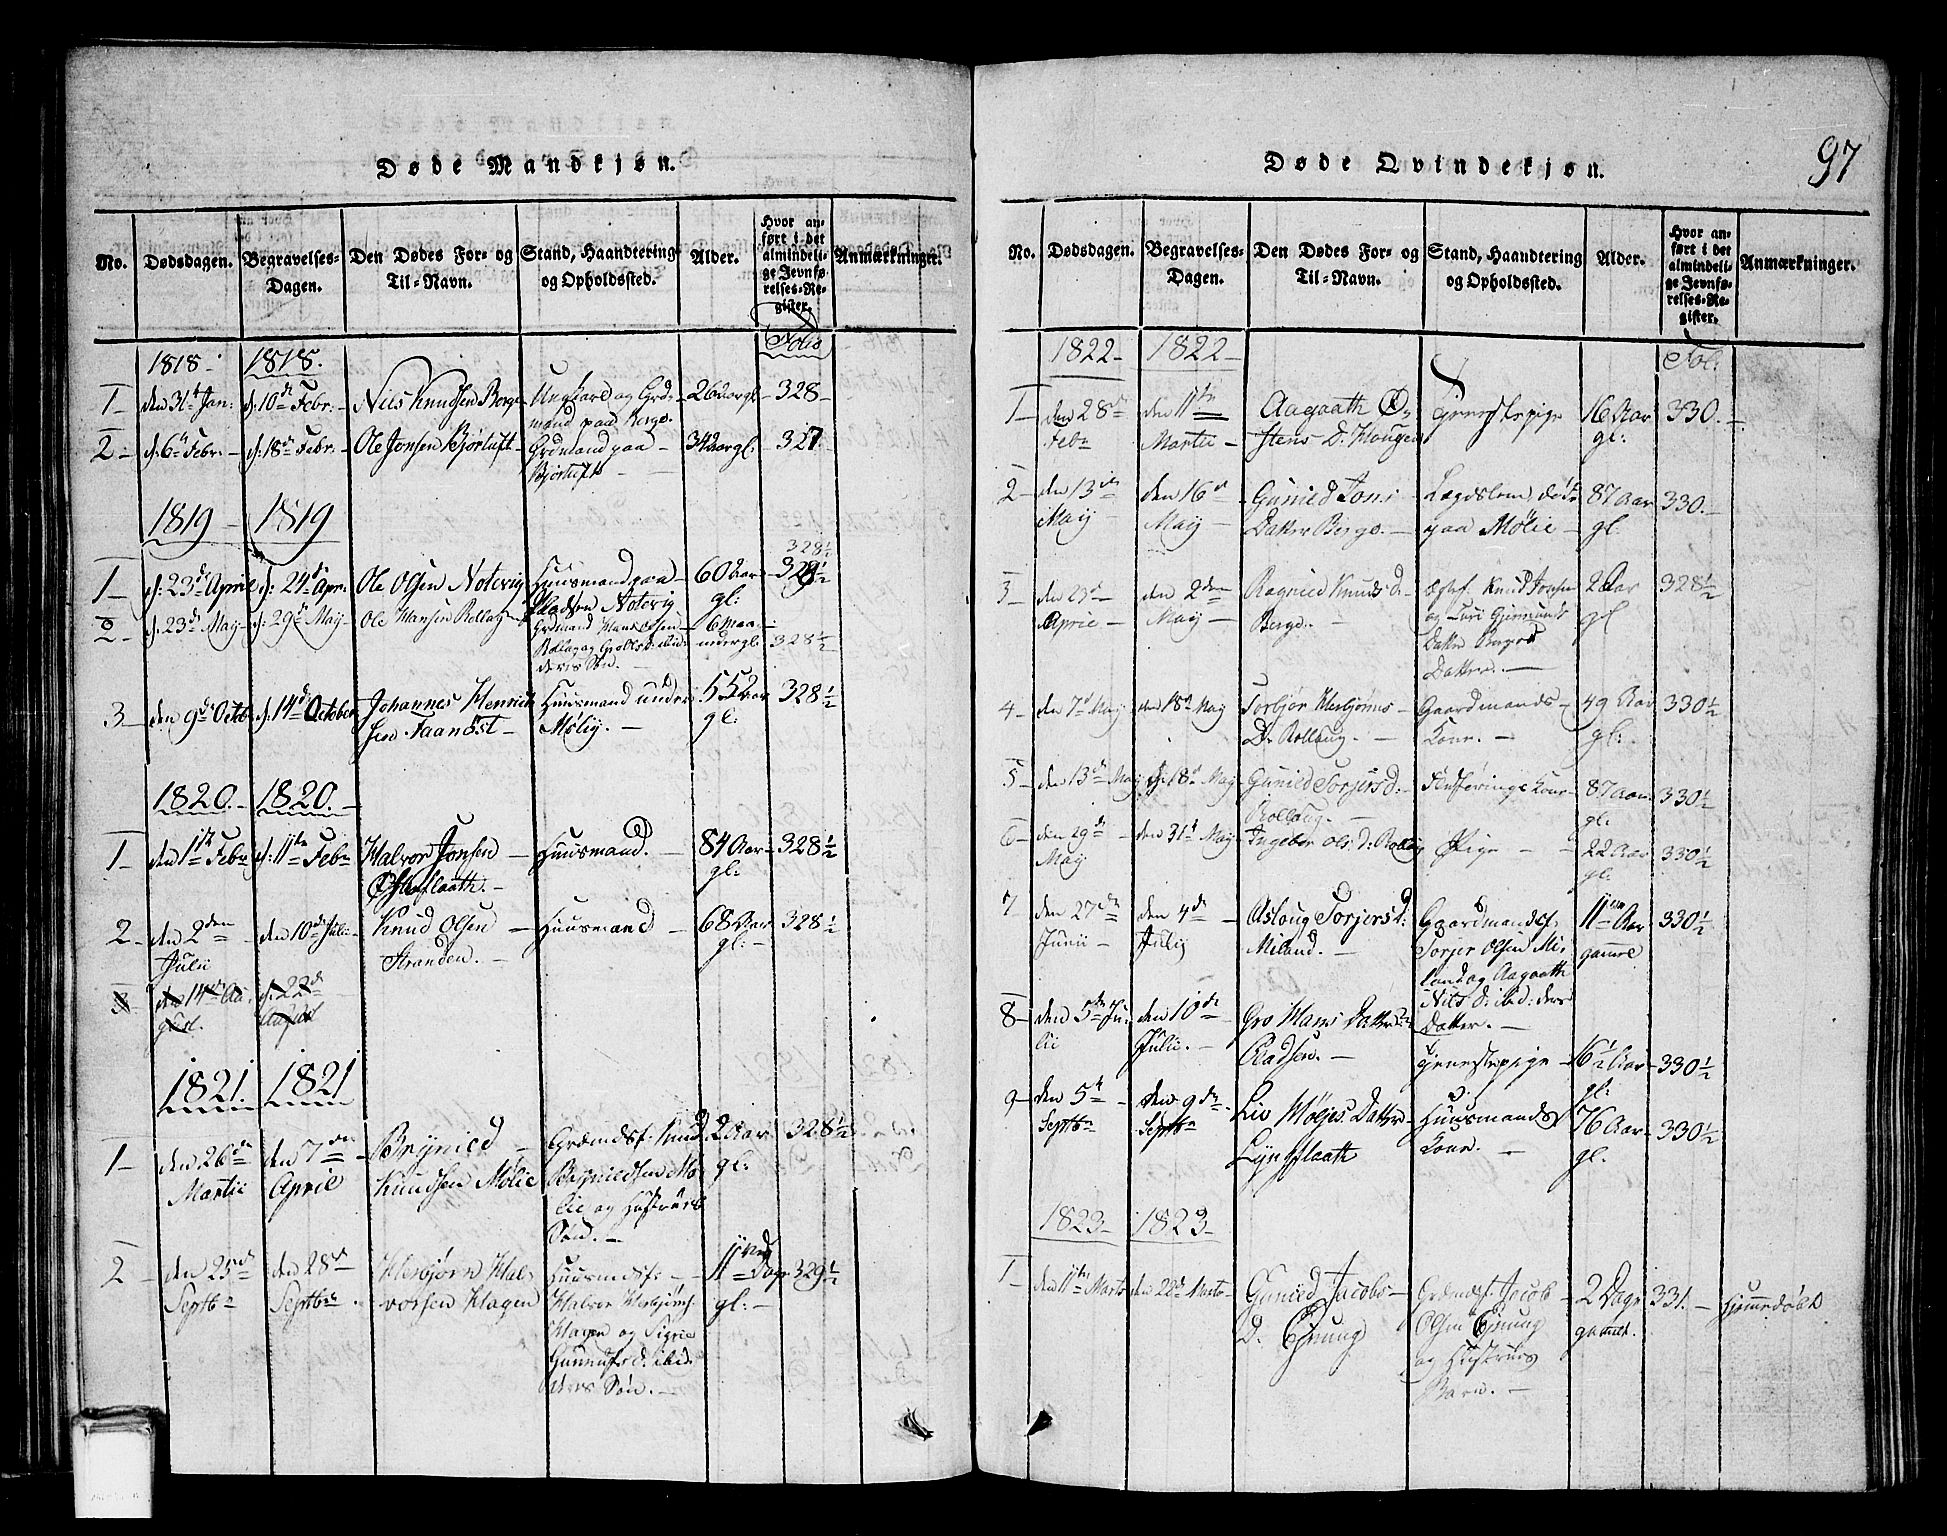 97
Døde Mandkjøn.
No. Dødsdagen. Begravelses-Dagen. Den Dødes For- og Til-Navn. Stand, Haandtering og Opholdssted. Alder. Hvor anført i det almindelige Jevnførelses-Register. Anmærkninger.
Folio
1818. 1818.
1 den 31te Jan: d: 10de Febr. Nils Knudsen Berge Ungkarl og Grdmand paa Berge. 26 Aar gl. 328
2 d: 6te Febr. d: 18de Febr. Ole Jonsen Bjørtuft Grdmand paa Bjørtuft 34 Aar gl. 327
1819 1819
1 d: 23de April d: 24de Apr. Ole Olsen Notevig Huusmand paa Pladsen Notevig 60 Aar gl: 328½
2 d: 23de May d: 29de May Ole Hansen Rollag Grdmand Hans Olsen Rollag og Gro Olsd. ibid: deres Søn. 6 Maaneder gl. 328½
3 den 9de Octb. d: 14de October Johannes Henriksen Faanøst Huusmand under Møliy. 55 Aar gl: 328½
1820. 1820.
1 den 1te Febr d: 11te Febr Halvor Jonsen Huusmand. 84 Aar gl: 328½
2 den 2den Julii den 10de Julii Knud Olsen Stranden. Huusmand 68 Aar gl: 328½
3 den 14de August. d: 22de August
1821. 1821
1 den 26de Martii den 7de April Brynied Knudsen Mølie Grdmdsf. Knud Bryniedsen Mølie og Hustrues Søn. 2 Aar gl: 328½
2 den 25de Septbr den 28de Septbr. Herbjørn Halvorsen Hagen Huusmdsf: Halvor Herbjørns: Hagen og Sigrie Gunnulfsd. ibid. deres Søn. 11 Dage gl: 329½
Døde Qvindekjøn.
No. Dødsdagen. Begravelses-Dagen. Den Dødes For- og Til-Navn. Stand, Haandtering og Opholdssted. Alder. Hvor anført i det almindelige Jevnførelses-Register. Anmærkninger.
Fol:
1822 1822
1 den 28de Febr den 11te Martii Aagaath Østens D. Haugen Tjenestepige 16 Aar gl: 330.
2 den 13de May den 16de May Gunied Jons Datter Berge. Lægdslem, død paa Mølie 87 Aar gl. 330.
3 den 23de April den 2den May Ragnied Knuds d. Berge. Ægtef. Knud Jonsen og Turi Gjermunds Datter Berges Datter. 2 Aar gl 328½
4 den 7de May den 18de May Torbjør Herbjørns D. Rollaug. Gaardmands Kone. 49 Aar gl: 330½
5 den 13de May d: 18de May Gunied Torjersd. Rollaug. Fledføringe Kone 87 Aar gl: 330½
6 den 29de May den 31te May Ingebor Ols d: Rollag Pige 22 Aar gl. 330½
7 den 27de Junii den 4de Julij Aslaug Torjersd: Meland. Gaardmandsf. Torjer Olsen Miland og Aagaath Nils d: ibid: deres Datter. 11 Aar gamle 330½
8 den 5te Julii den 10de Julii. Gro Hans Datter Pladsen. Tjenestepige 16½ Aar gl: 330½
9 den 5te Septbr den 9de Septbr Liv Møljes Datter Lynsflaath Huusmands Kone. 76 Aar gl. 330½
1823 1823
1 den 11te Marts den 22de Marts Gunied Jacobs D. Grdmdsf. Jacob Olsen og Hustrues Barn. 2 Dage gamelt. 331. Hjemmedøbt